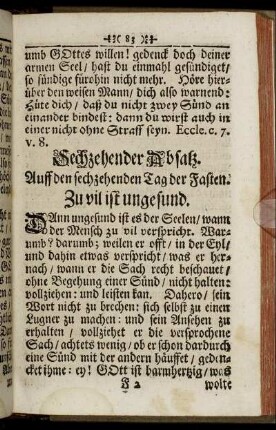 83
umb GOttes willen! gedenck doch deiner
armen Seel / hast du einmahl gesündiget /
so sündige fürohin nicht mehr. Höre hier-
über den weisen Mann / dich also warnend:
Hüte dich / daß du nicht zwey Sünd an
einander bindest: dann du wirst auch in
einer nicht ohne Straff seyn. Eccle. c. 7.
v. 8.
Sechzehender Absatz.
Auff den sechzehenden Tag der Fasten.
Zu vil ist ungesund.
DAnn ungesund ist es der Seelen / wann
der Mensch zu vil verspricht. War-
umb? darumb; weilen er offt / in der Eyl /
und dahin etwas verspricht / was er her-
nach / wann er die Sach recht beschauet /
ohne Begehung einer Sünd / nicht halten:
vollziehen: und leisten kan. Dahero / sein
Wort nicht zu brechen: sich selbst zu einen
Lugner zu machen: und sein Ansehen zu
erhalten / vollziehet er die versprochene
Sach / achtets wenig / ob er schon dardurch
eine Sünd mit der andern häuffet / geden-
cket ihme: ey! GOtt ist barmhertzig / was
F 2 wolte